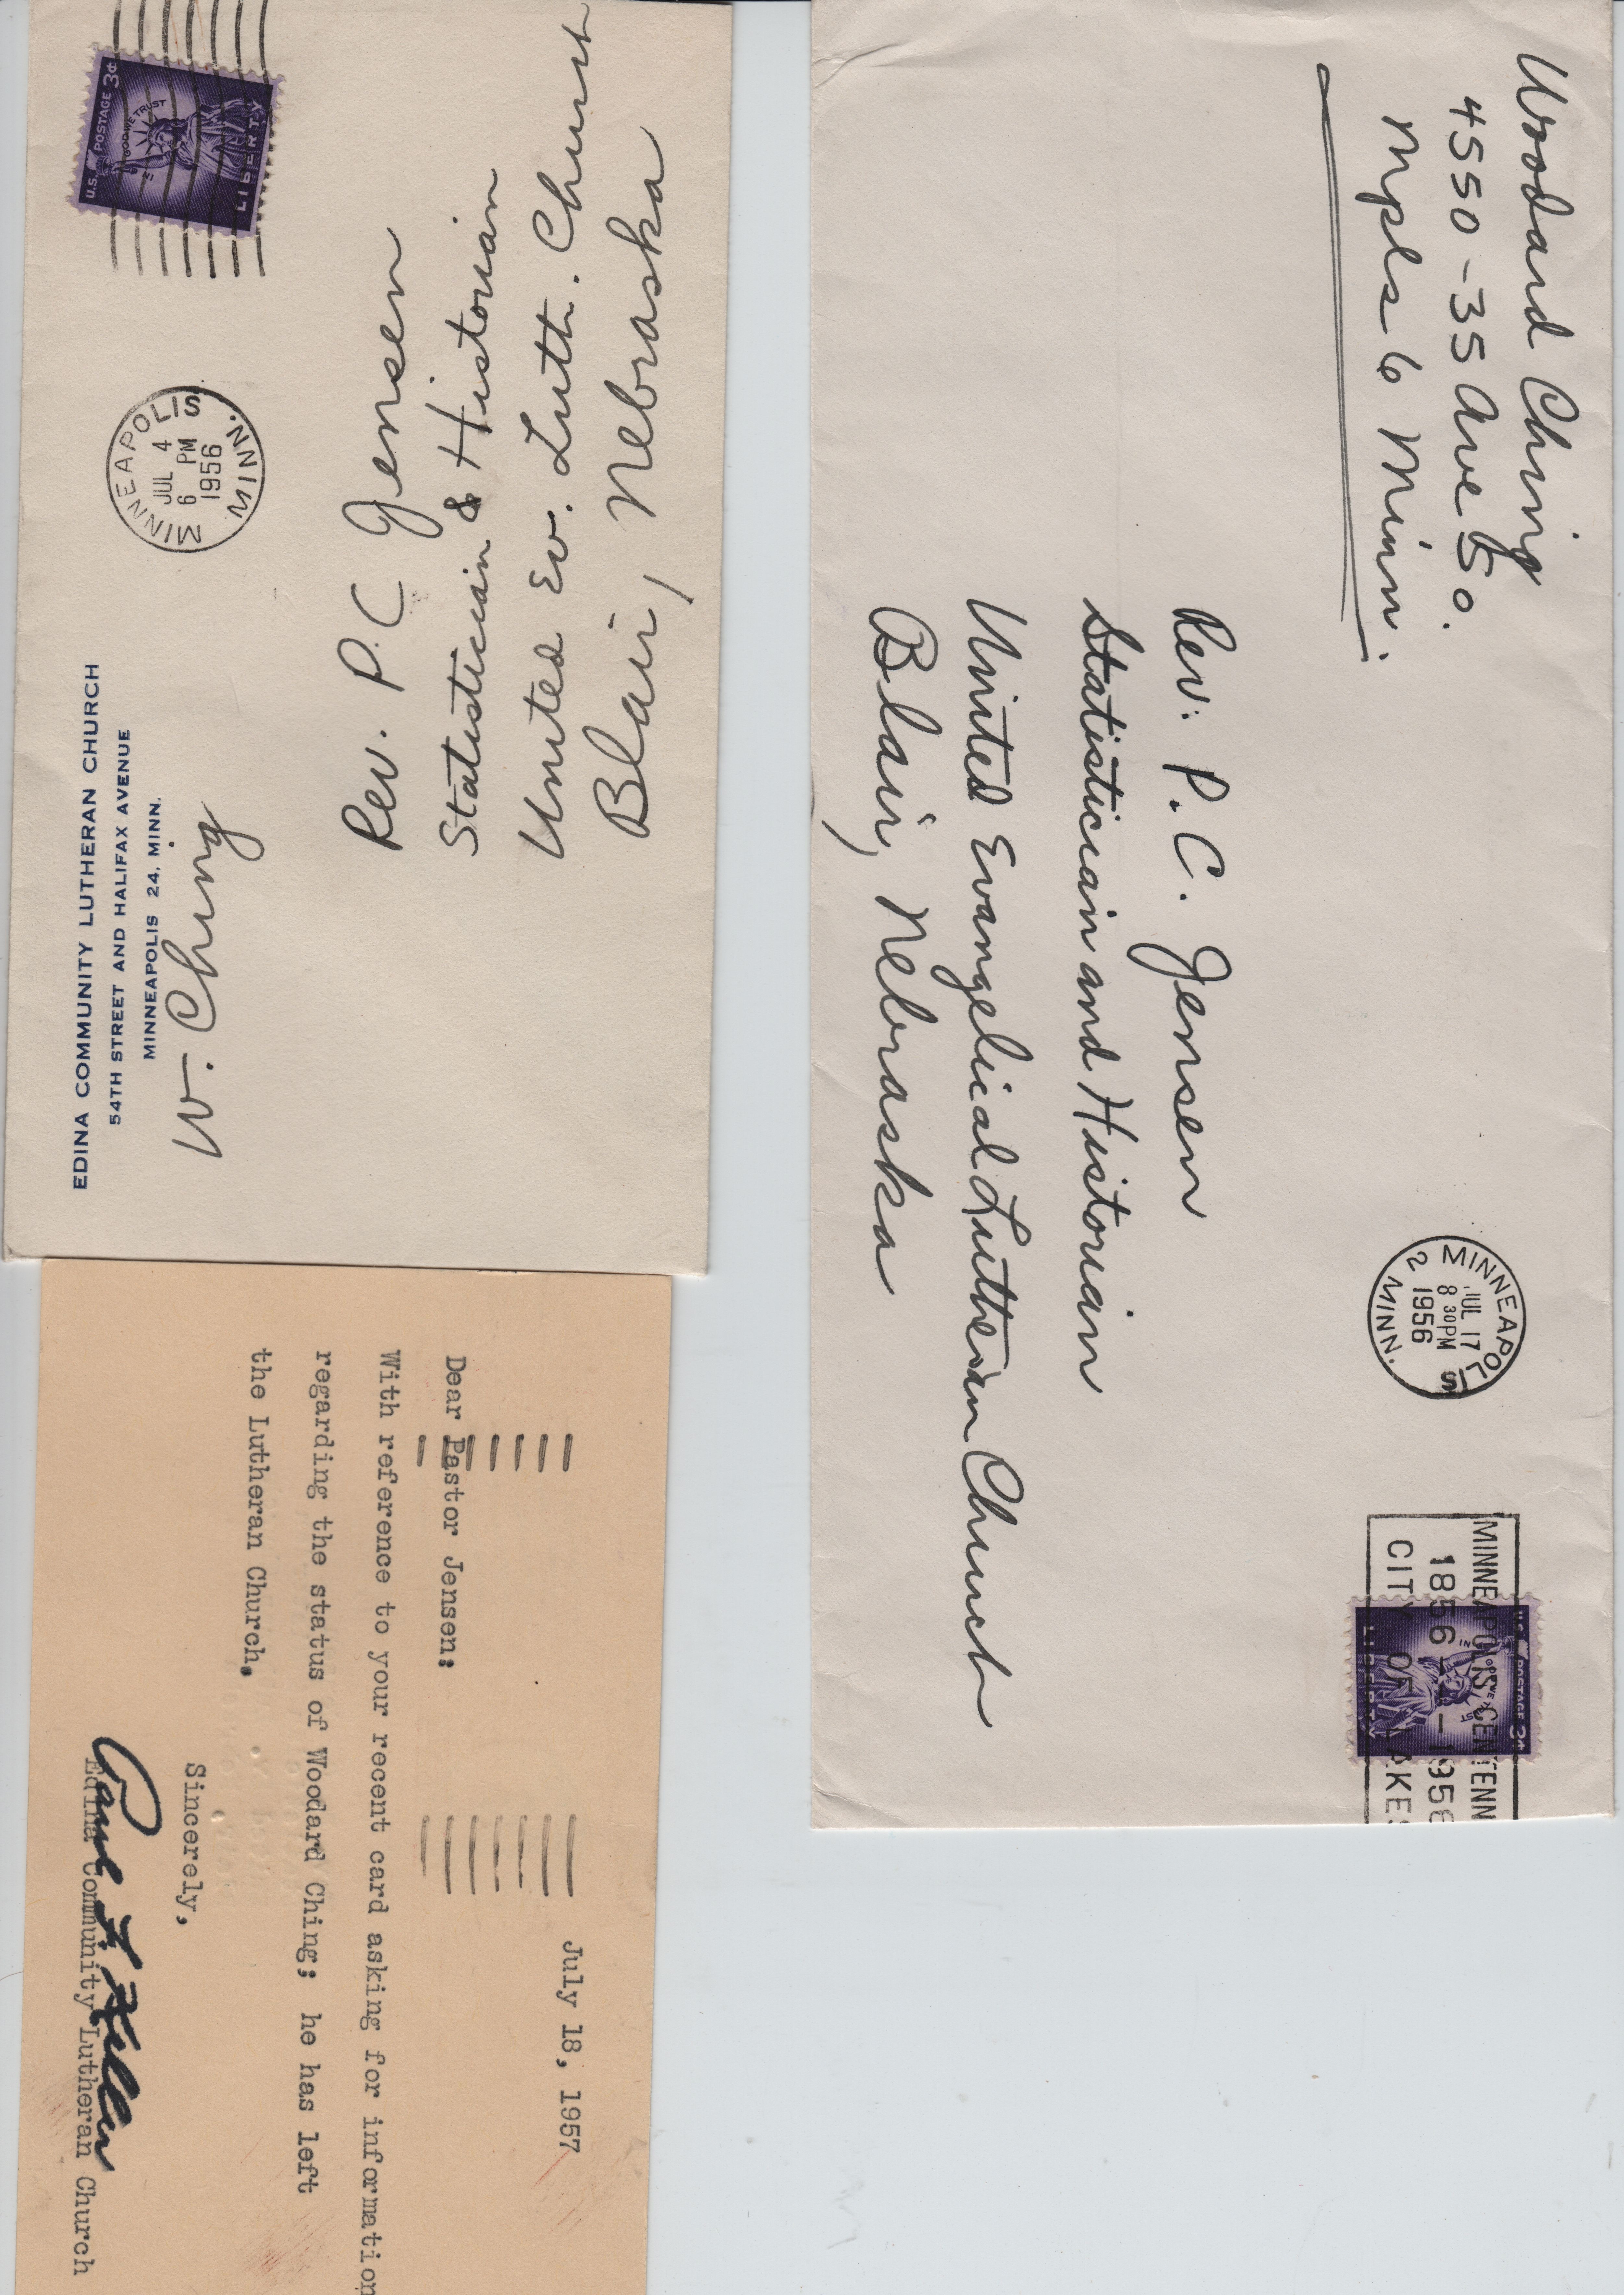 EDINA COMMUNITY LUTHERAN CHURCH
54TH STREET AND HALIFAX AVENUE
MINNEAPOLIS 24, MINN.
W. Ching
MINNEAPOLIS MINN.
JUL 4
6 PM
1956
U.S. POSTAGE 3¢
IN GOD WE TRUST
LIBERTY
Rev. P. C Jensen
Statistician & Historian
United Ev. Luth. Church
Blair, Nebraska
Woodard Ching
4550-35 Ave So.
Mpls 6 Minn.
MINNEAPOLIS 2 MINN.
JUL 17
8 30 PM
1956
MINNEAPOLIS CENTENN
1856 - 1956
CITY OF LAKES
U.S. POSTAGE 3¢
IN GOD WE TRUST
LIBERTY
Rev. P. C. Jensen
Statistician and Historian
United Evangelical Lutheran Church
Blair, Nebraska
July 18, 1957
Dear Pastor Jensen:
With reference to your recent card asking for information
regarding the status of Woodard Ching; he has left
the Lutheran Church.
Sincerely,
Edina Community Lutheran Church